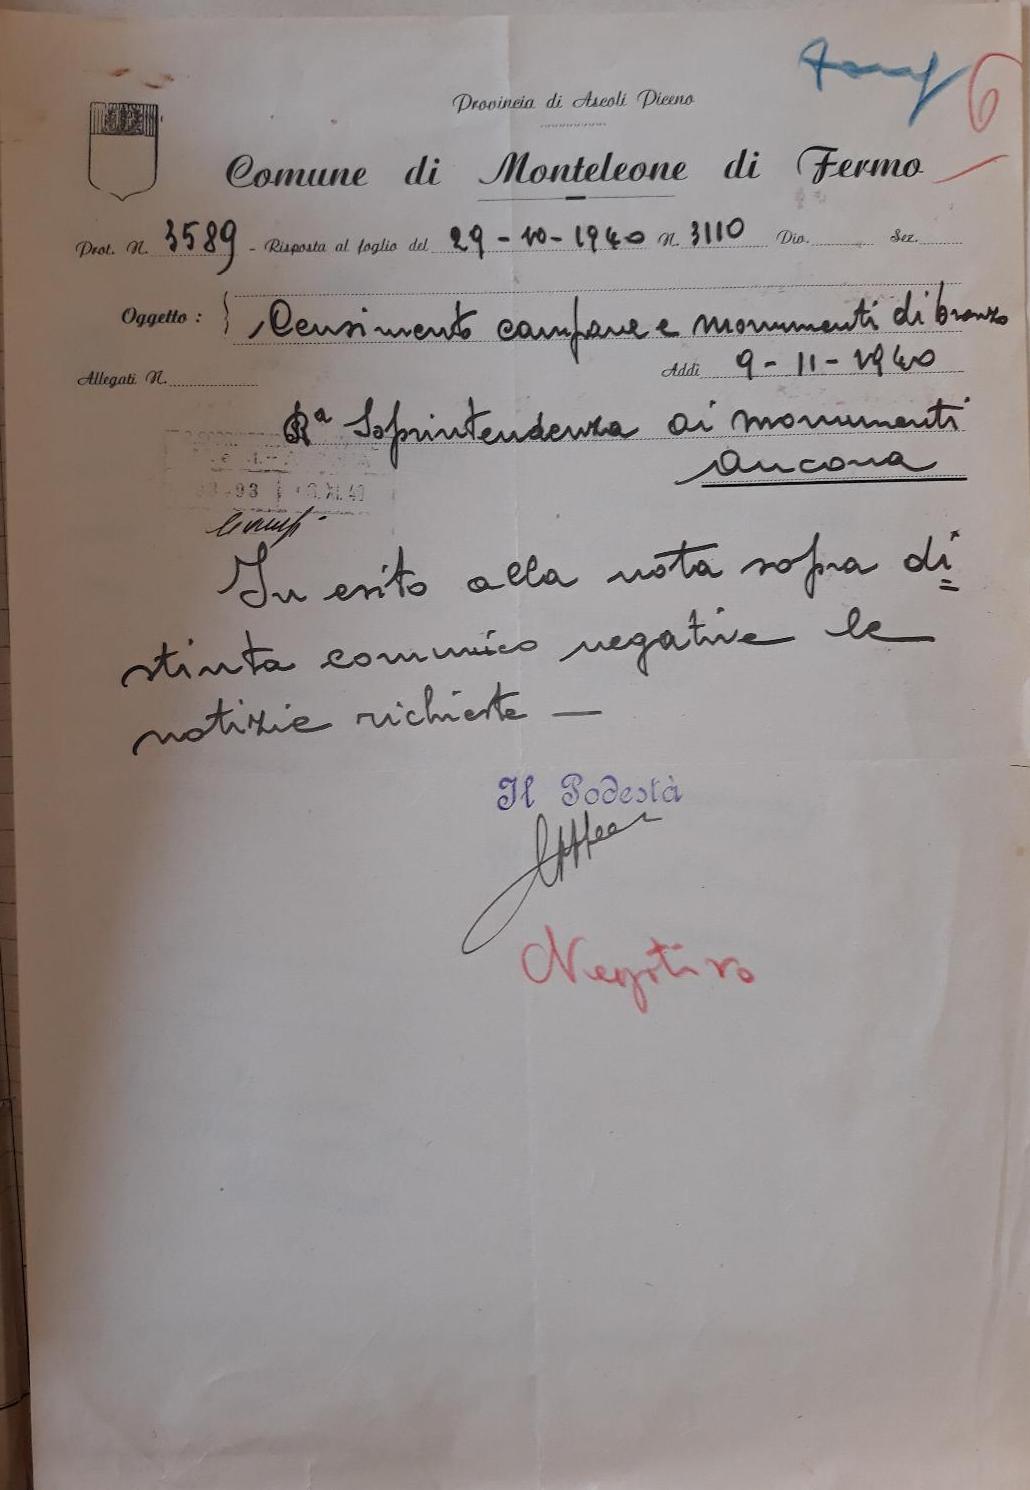 6
Provincia di Ascoli Piceno
Comune di Monteleone di Fermo
Prot. N. 3589 - Risposta al foglio del 29-10-1940 N. 3110 Div. Sez.
Oggetto: Censimento campane e monumenti di bronzo
Allegati N. Addì 9-11-1940
Rª Soprintendenza ai monumenti
Ancona
In esito alla nota sopra di=
stinta comunico negative le
notizie richieste —
Il Podestà
Negativo